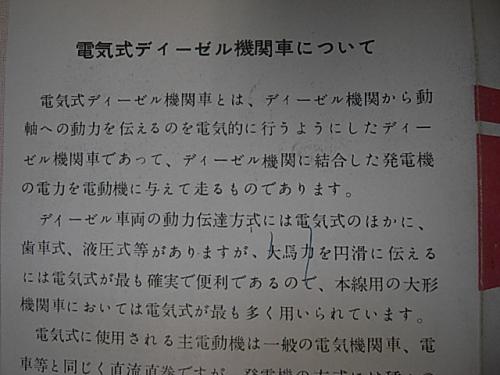 電気式ディーゼル機関車について
電気式ディーゼル機関車とは、ディーゼル機関から動
軸への動力を伝えるのを電気的に行うようにしたディー
ゼル機関車であって、ディーゼル機関に結合した発電機
の電力を電動機に与えて走るものであります。
ディーゼル車両の動力伝達方式には電気式のほかに、
歯車式、液圧式等がありますが、大馬力を円滑に伝える
には電気式が最も確実で便利であるので、本線用の大形
機関車においては電気式が最も多く用いられています。
電気式に使用される主電動機は一般の電気機関車、電
車等と同じく直流直巻ですが、発電機の方式には種々の